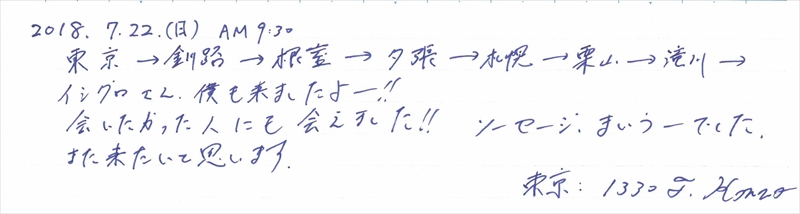 2018. 7.22.(日) AM 9:30
東京→釧路→根室→夕張→札幌→栗山→滝川→
イシグロさん、僕も来ましたよー!!
会いたかった人にも会えました!! ソーセージ、まいうーでした。
また来たいと思います。
東京: 1330 T. Honzo